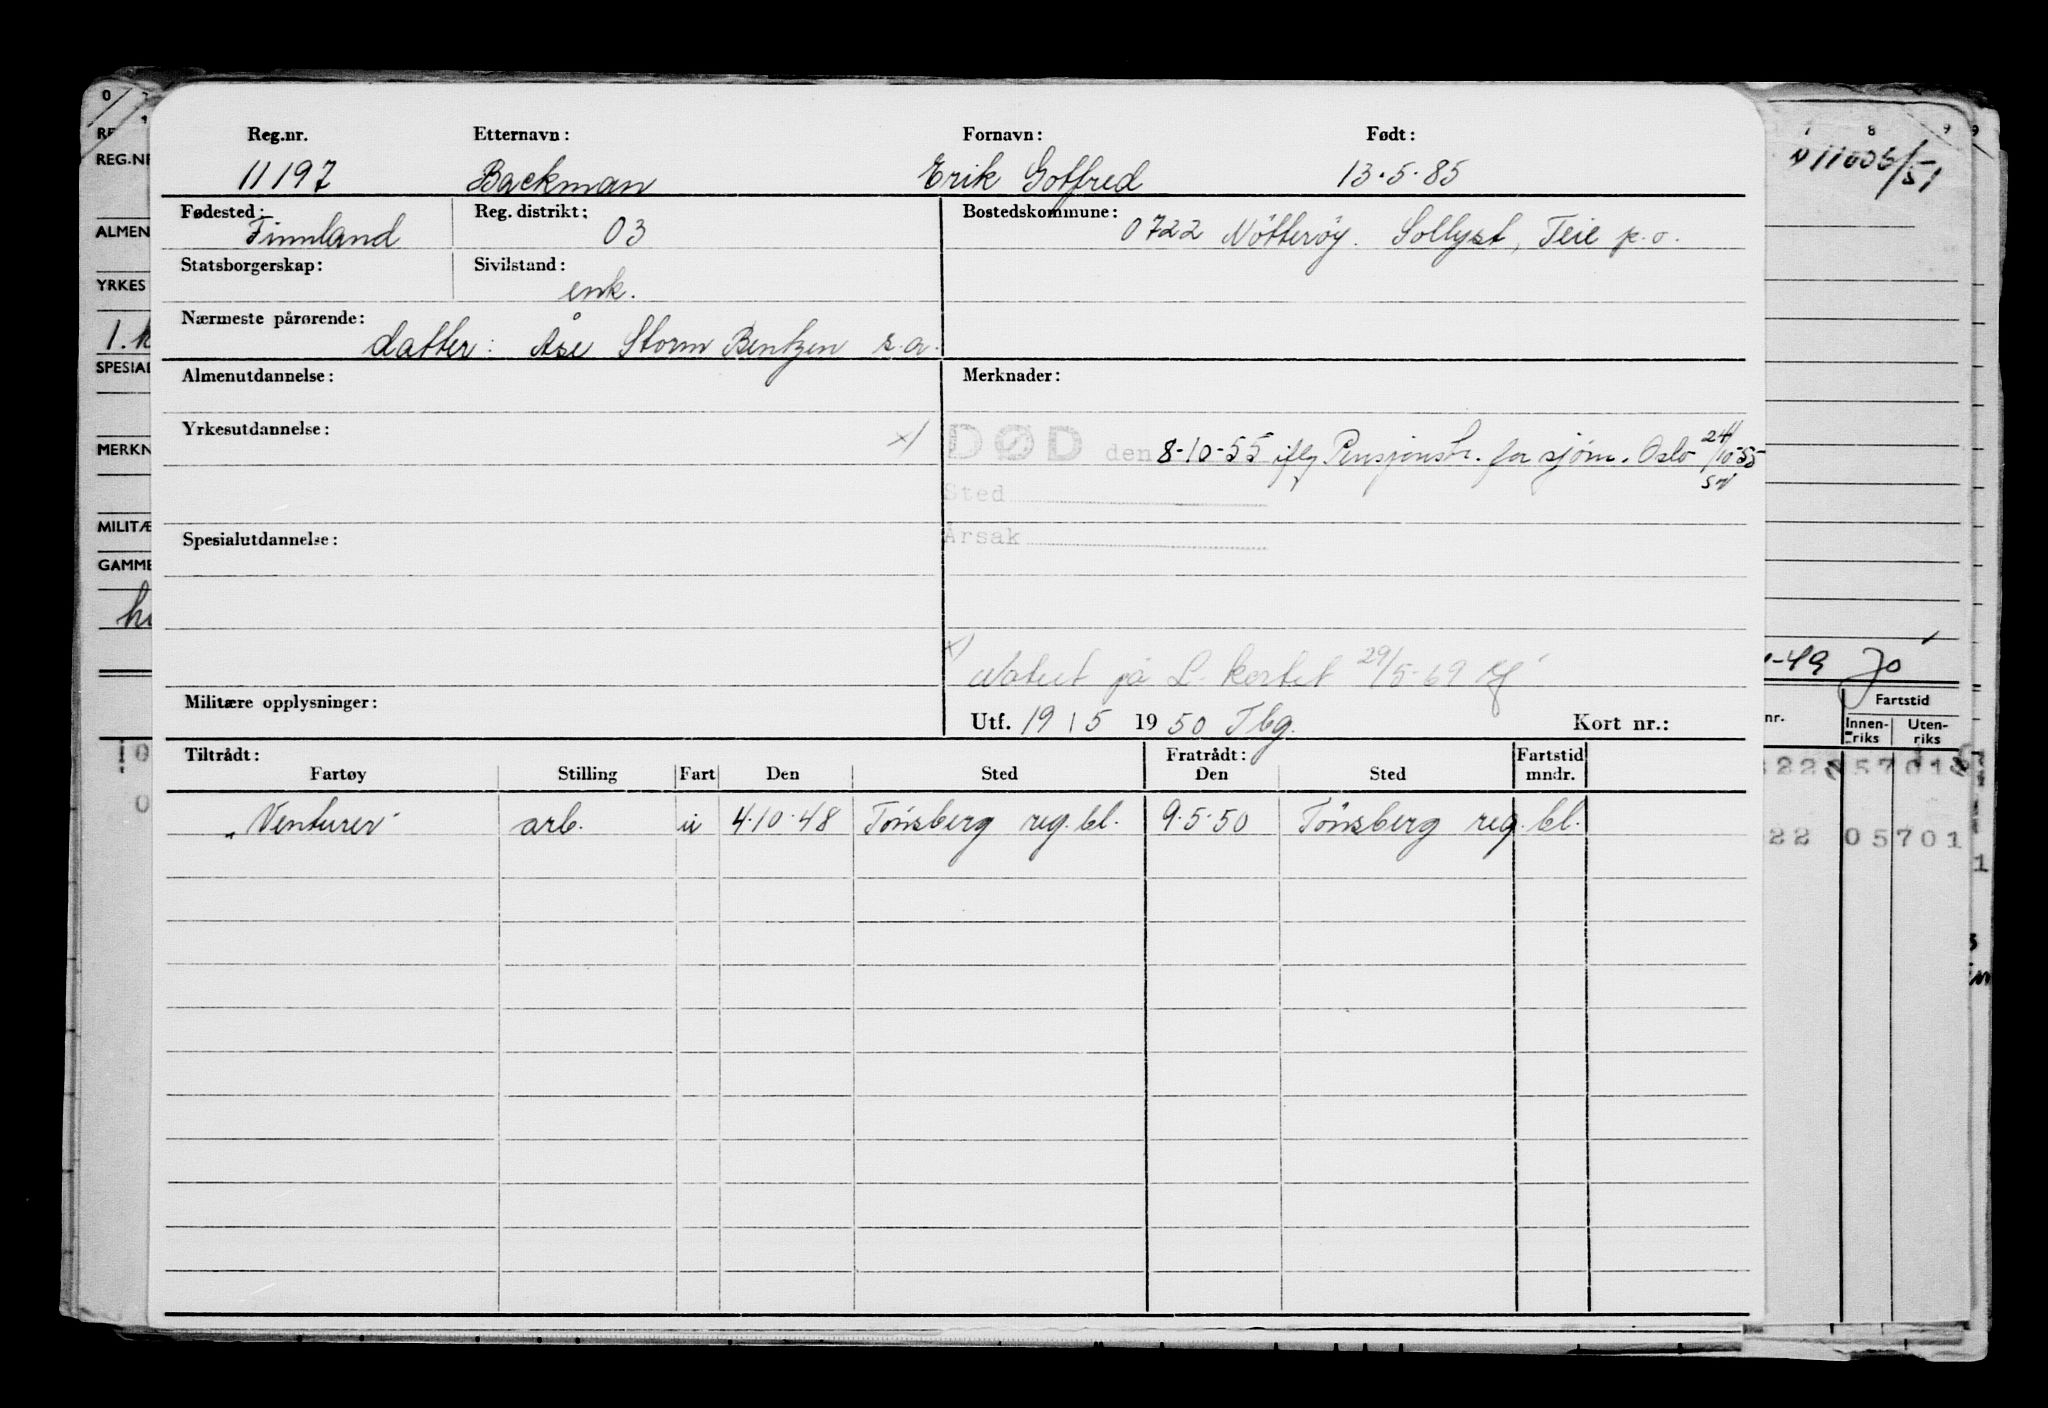 Reg.nr. Etternavn: Fornavn: Født:
11197 Backman Erik Gotfred 13.5.85
Fødested: Finnland Reg. distrikt: 03 Bostedskommune: 0722 Nötteröy. Sollyst, Teie p.o.
Statsborgerskap: Sivilstand: enk.
Nærmeste pårørende: datter: Åse Storm Bentzen s.a.
Almenutdannelse: Merknader:
Yrkesutdannelse: x) DØD den 8-10-55 iflg Pensjonstr. for sjøm. Oslo 24/10-55
Sted
Spesialutdannelse: Årsak
x) Notert på L. kortet 29/5-69
Militære opplysninger: Utf. 19/5 1950 Tbg. Kort nr.:
Tiltrådt: Fratrådt: Fartstid
Fartøy Stilling Fart Den Sted Den Sted mndr.
"Venturer" arb. u 4.10.48 Tönsberg reg. bl. 9.5.50 Tönsberg reg. bl.
0
REG.NR
ALMEN
YRKES
1.
SPESIAL
MERKN
MILITÆ
GAMME
10
0
7 8 9 9
11605/51
-49 Jo
Fartstid
nr. Innen-riks Uten-riks
22 05701
1